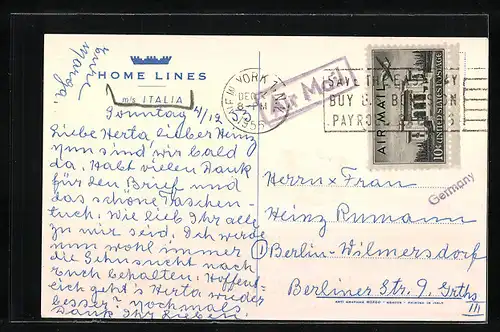 Eure
Marga
HOME LINES
m/s ITALIA
Sonntag 4/12
Liebe Herta lieber Heinz
nun sind wir bald
da. Habt vielen Dank
für den Brief und
das schöne Taschen-
tuch. Wie lieb Ihr alle
zu mir seid. Ich werde
nun wohl immer
die Sehnsucht nach
Euch behalten. Hoffent-
lich geht's Herta wieder
besser? nochmals
Dank Ihr Lieben.
NEW YORK
DEC
8 - PM
1955
Air Mail
SAVE THE
BUY
PAYRO
AIR MAIL
10¢ UNITED STATES POSTAGE
Herrn u Frau
Heinz Rumann
Germany
1 Berlin-Wilmersdorf
Berliner Str. 9. Grths
III